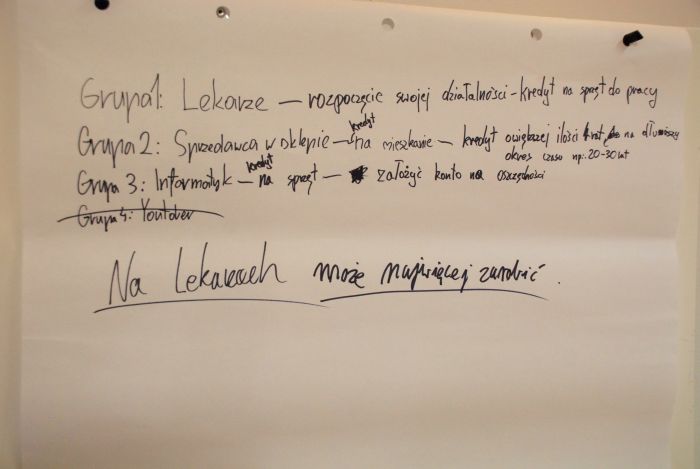 Grupa 1: Lekarze – rozpoczęcie swojej działalności – kredyt na sprzęt do pracy
Grupa 2: Sprzedawca w sklepie – kredyt na mieszkanie – kredyt o większej ilości rat na dłuższy
okres czasu np.: 20-30 lat
Grupa 3: Informatyk – kredyt na sprzęt – założyć konto na oszczędności
Grupa 4: Youtober
Na Lekarzach może najwięcej zarobić.